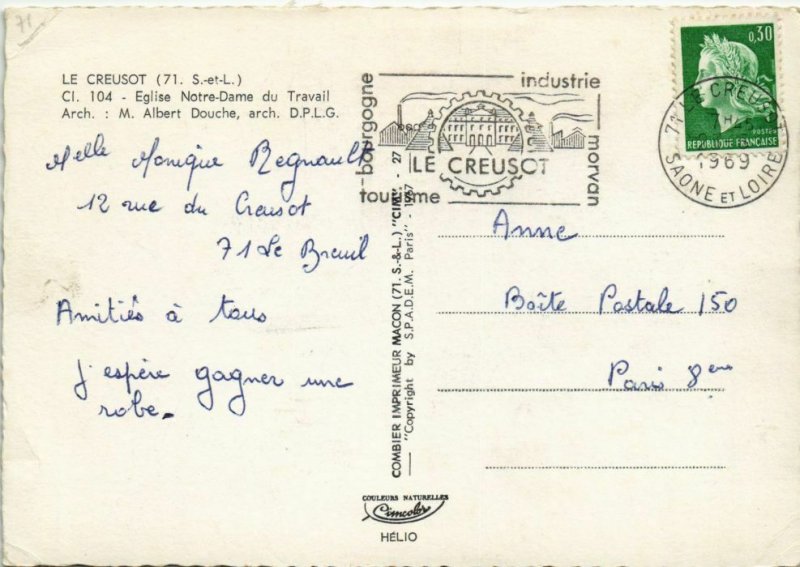 71
LE CREUSOT (71. S.-et-L.)
CI. 104 - Eglise Notre-Dame du Travail
Arch. : M. Albert Douche, arch. D.P.L.G.
Melle Monique Regnault
12 rue du Creusot
71 Le Breuil
Amitiés à tous
J'espère gagner une
robe.
COMBIER IMPRIMEUR MACON (71. S.-&-L.) "CIM" - 27
"Copyright by S.P.A.D.E.M. Paris" - 1967
COULEURS NATURELLES
Cimcolor
HÉLIO
bourgogne
industrie
morvan
tourisme
LE CREUSOT
0,30
POSTES
RÉPUBLIQUE FRANÇAISE
71 LE CREUSOT
1969
SAONE ET LOIRE
Anne
Boîte Postale 150
Paris 8eme